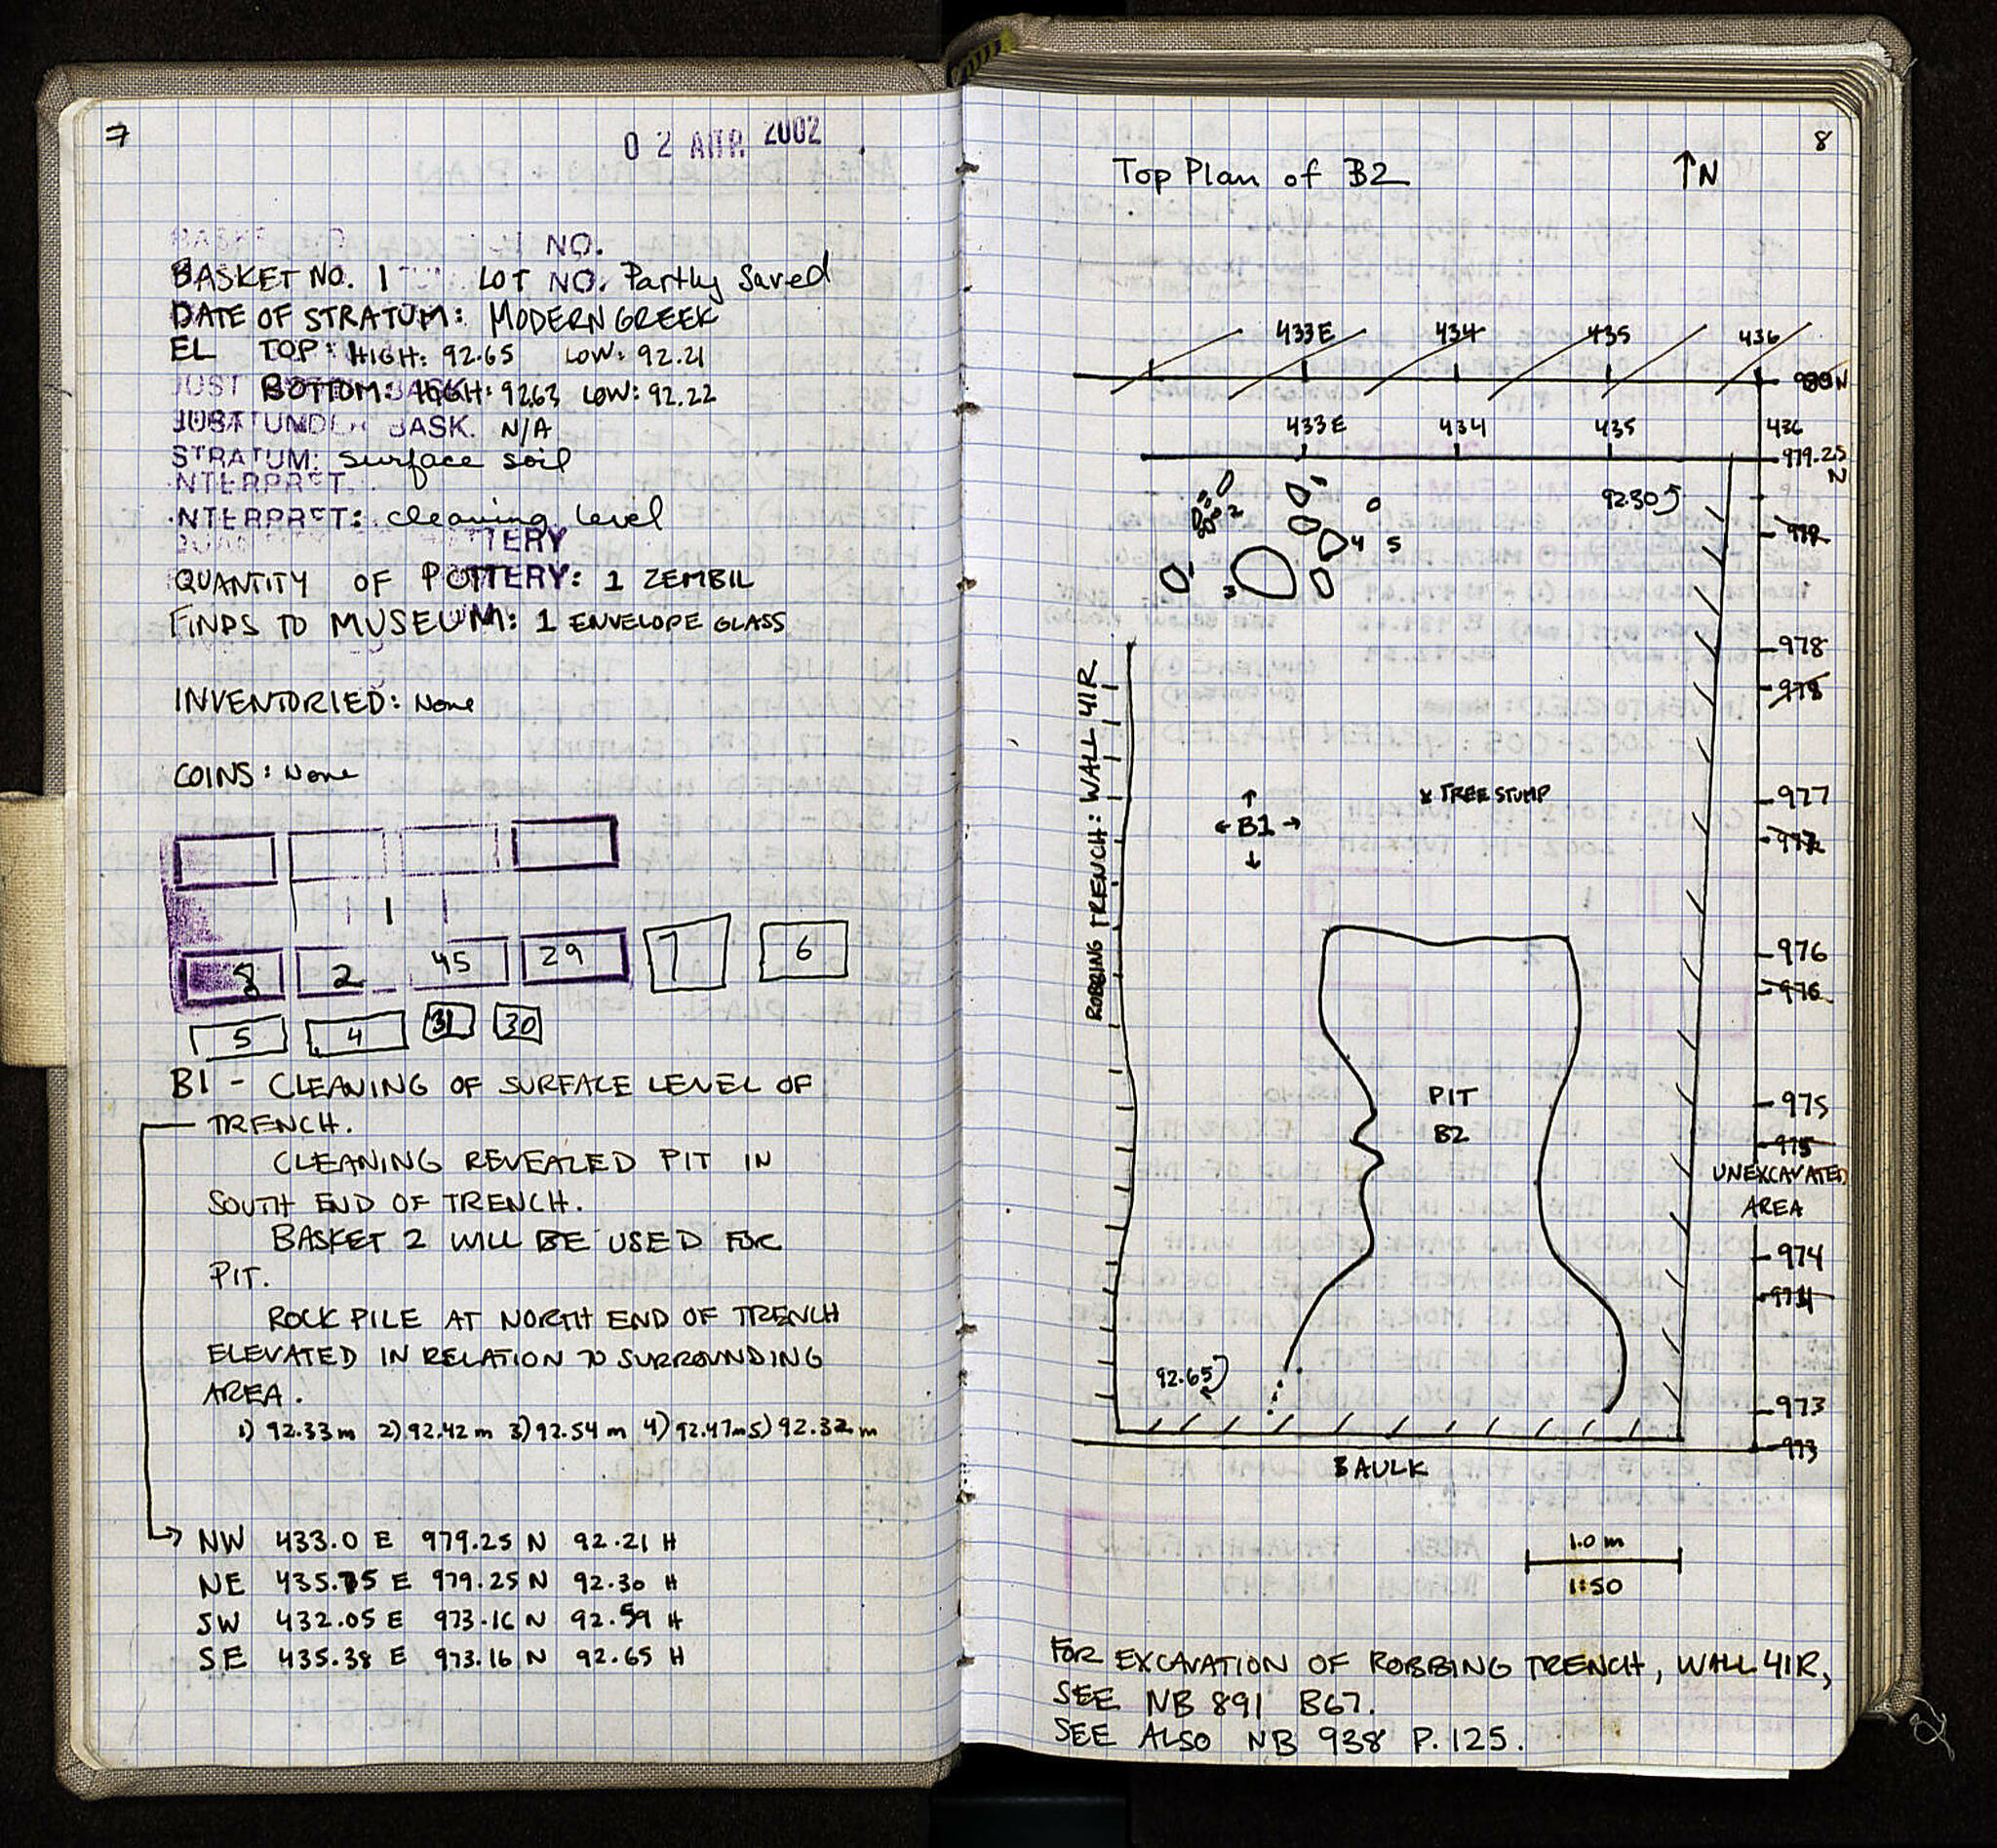 7
02 ΑΠΡ. 2002
NO.
BASKET NO. 1 LOT NO. Partly Saved
DATE OF STRATUM: MODERN GREEK
EL TOP: HIGH: 92.65 LOW: 92.21
BOTTOM: HIGH: 92.63 LOW: 92.22
JUST UNDER BASK. N/A
STRATUM: surface soil
NTERPRET.
NTERPRET: cleaning level
QUANTITY OF POTTERY: 1 ZEMBIL
FINDS TO MUSEUM: 1 ENVELOPE GLASS
INVENTORIED: None
COINS: None
1
8 2 45 29 7 6
5 4 31 30
B1 - CLEANING OF SURFACE LEVEL OF
TRENCH.
CLEANING REVEALED PIT IN
SOUTH END OF TRENCH.
BASKET 2 WILL BE USED FOR
PIT.
ROCK PILE AT NORTH END OF TRENCH
ELEVATED IN RELATION TO SURROUNDING
AREA.
1) 92.33m 2) 92.42 m 3) 92.54 m 4) 92.47m 5) 92.32 m
NW 433.0 E 979.25 N 92.21 H
NE 435.75 E 979.25 N 92.30 H
SW 432.05 E 973.16 N 92.59 H
SE 435.38 E 973.16 N 92.65 H
8
Top Plan of B2 ↑N
433E 434 435 436
980N
433E 434 435 436
979.25
N
92.30
2
979
4 5
1
3
978
978
ROBBING TRENCH: WALL 41R
x TREE STUMP
977
←B1→
977
976
976
PIT
B2
975
975
UNEXCAVATED
AREA
974
974
92.65
973
973
BAULK
1.0 m
1:50
FOR EXCAVATION OF ROBBING TRENCH, WALL 41R,
SEE NB 891 B67.
SEE ALSO NB 938 P. 125.